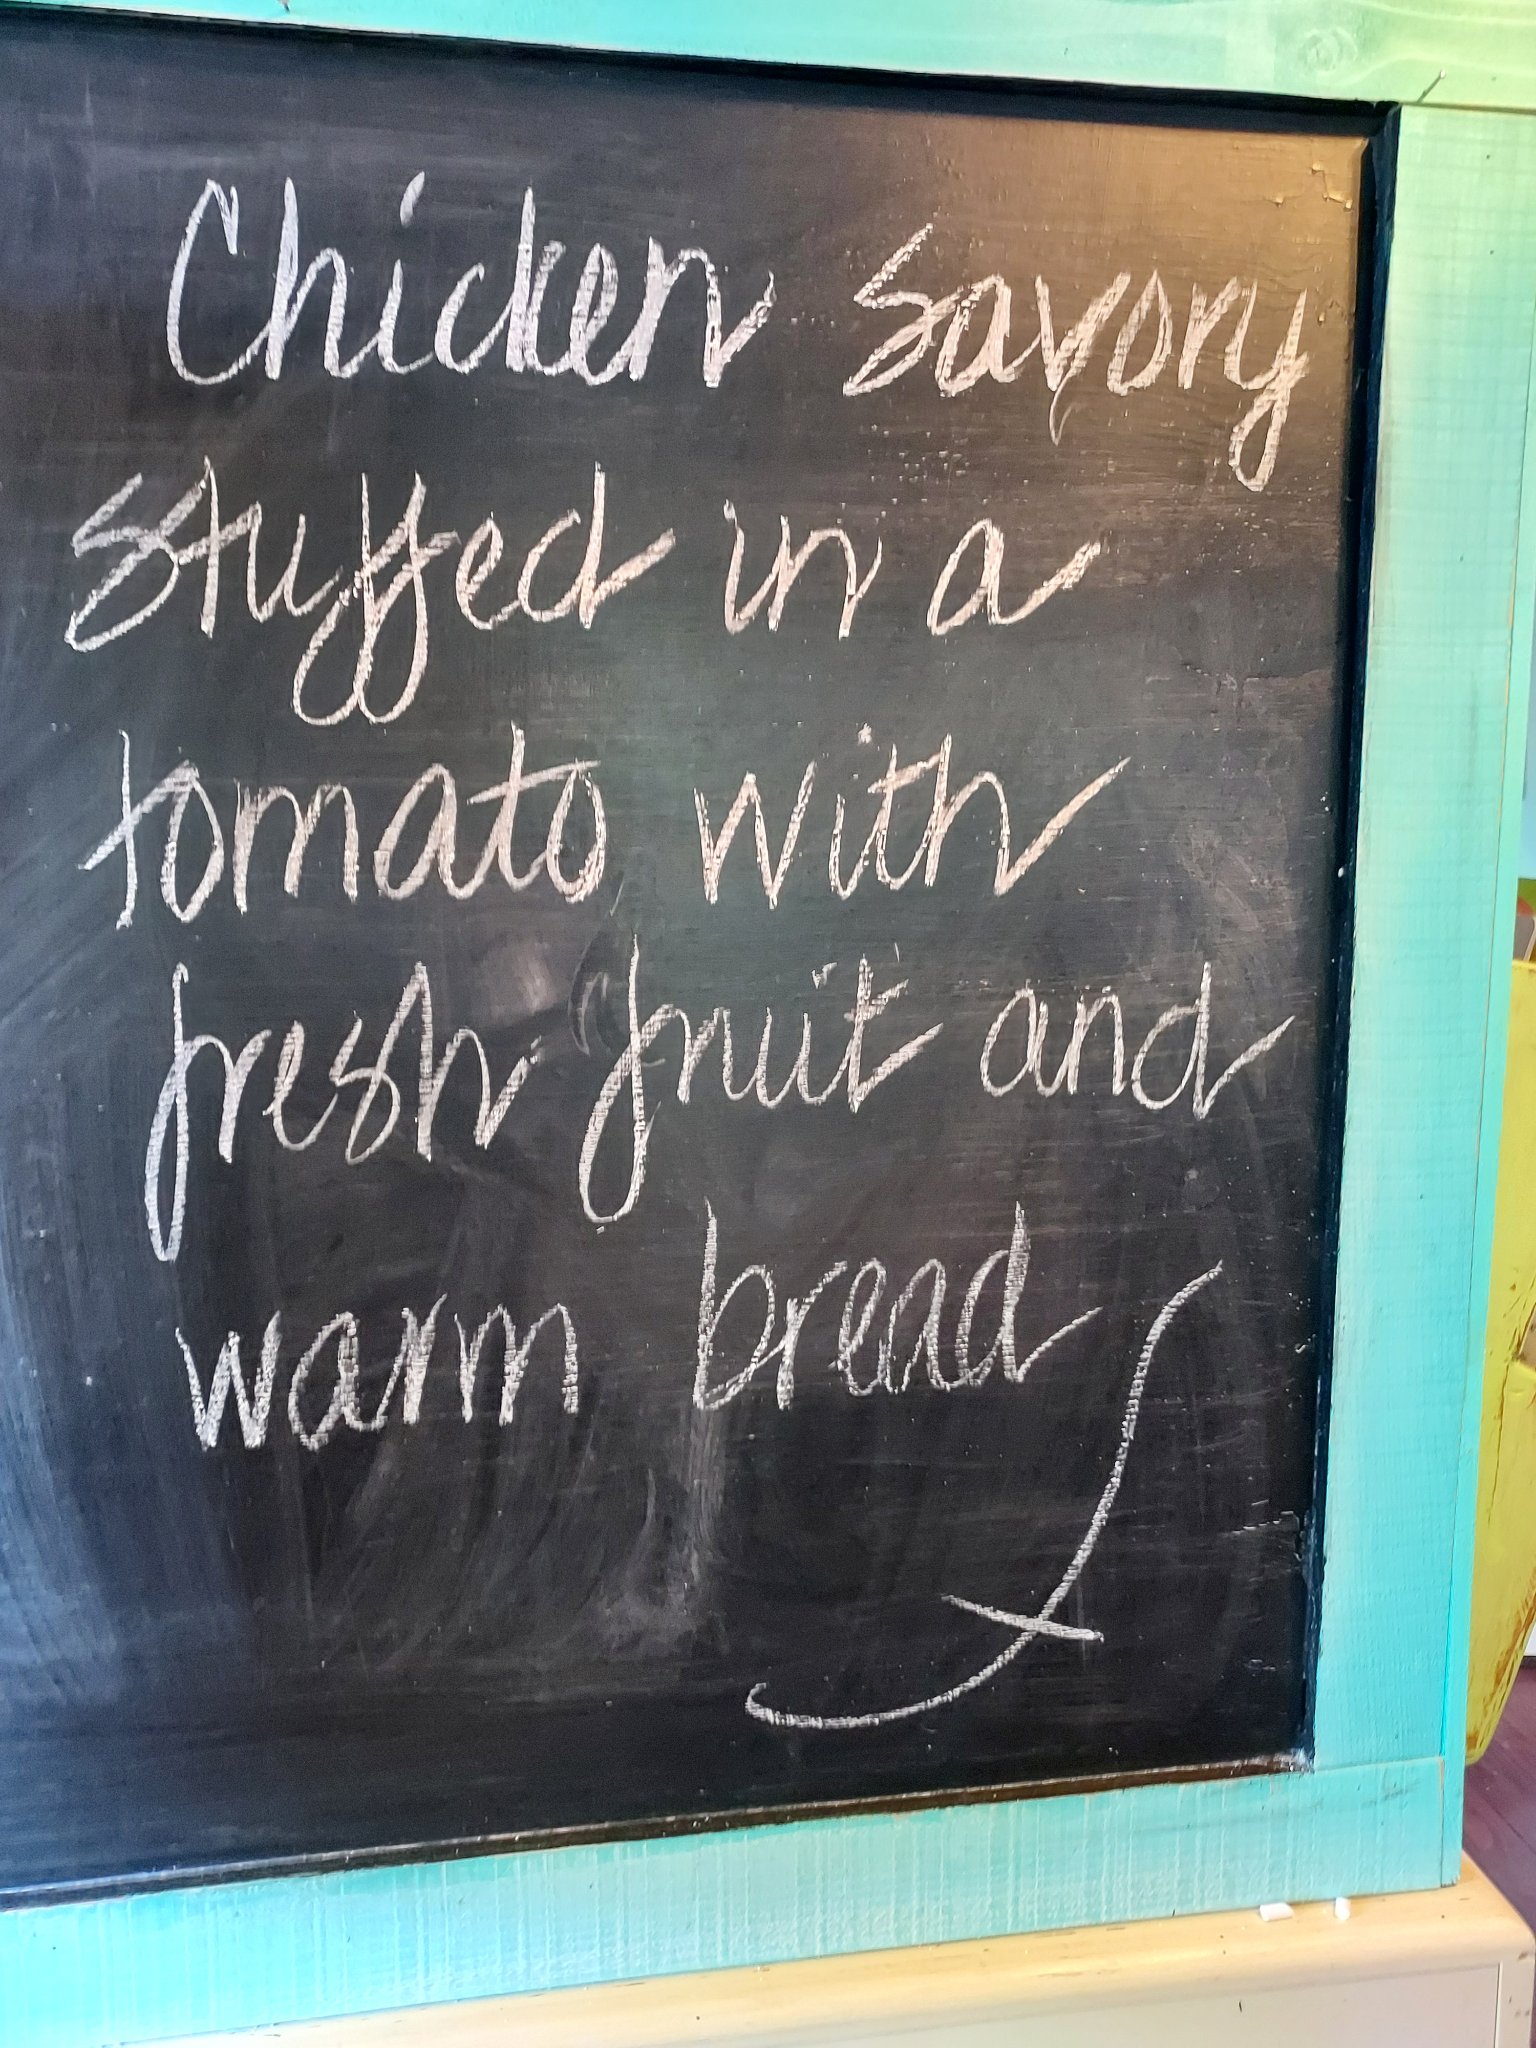 Chicken Savory
stuffed in a
tomato with
fresh fruit and
warm bread